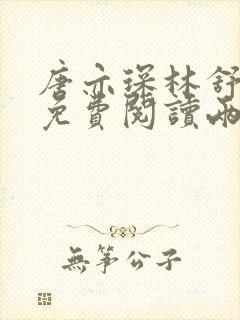 唐亦琛林舒
免費閱讀兩
無筝公子